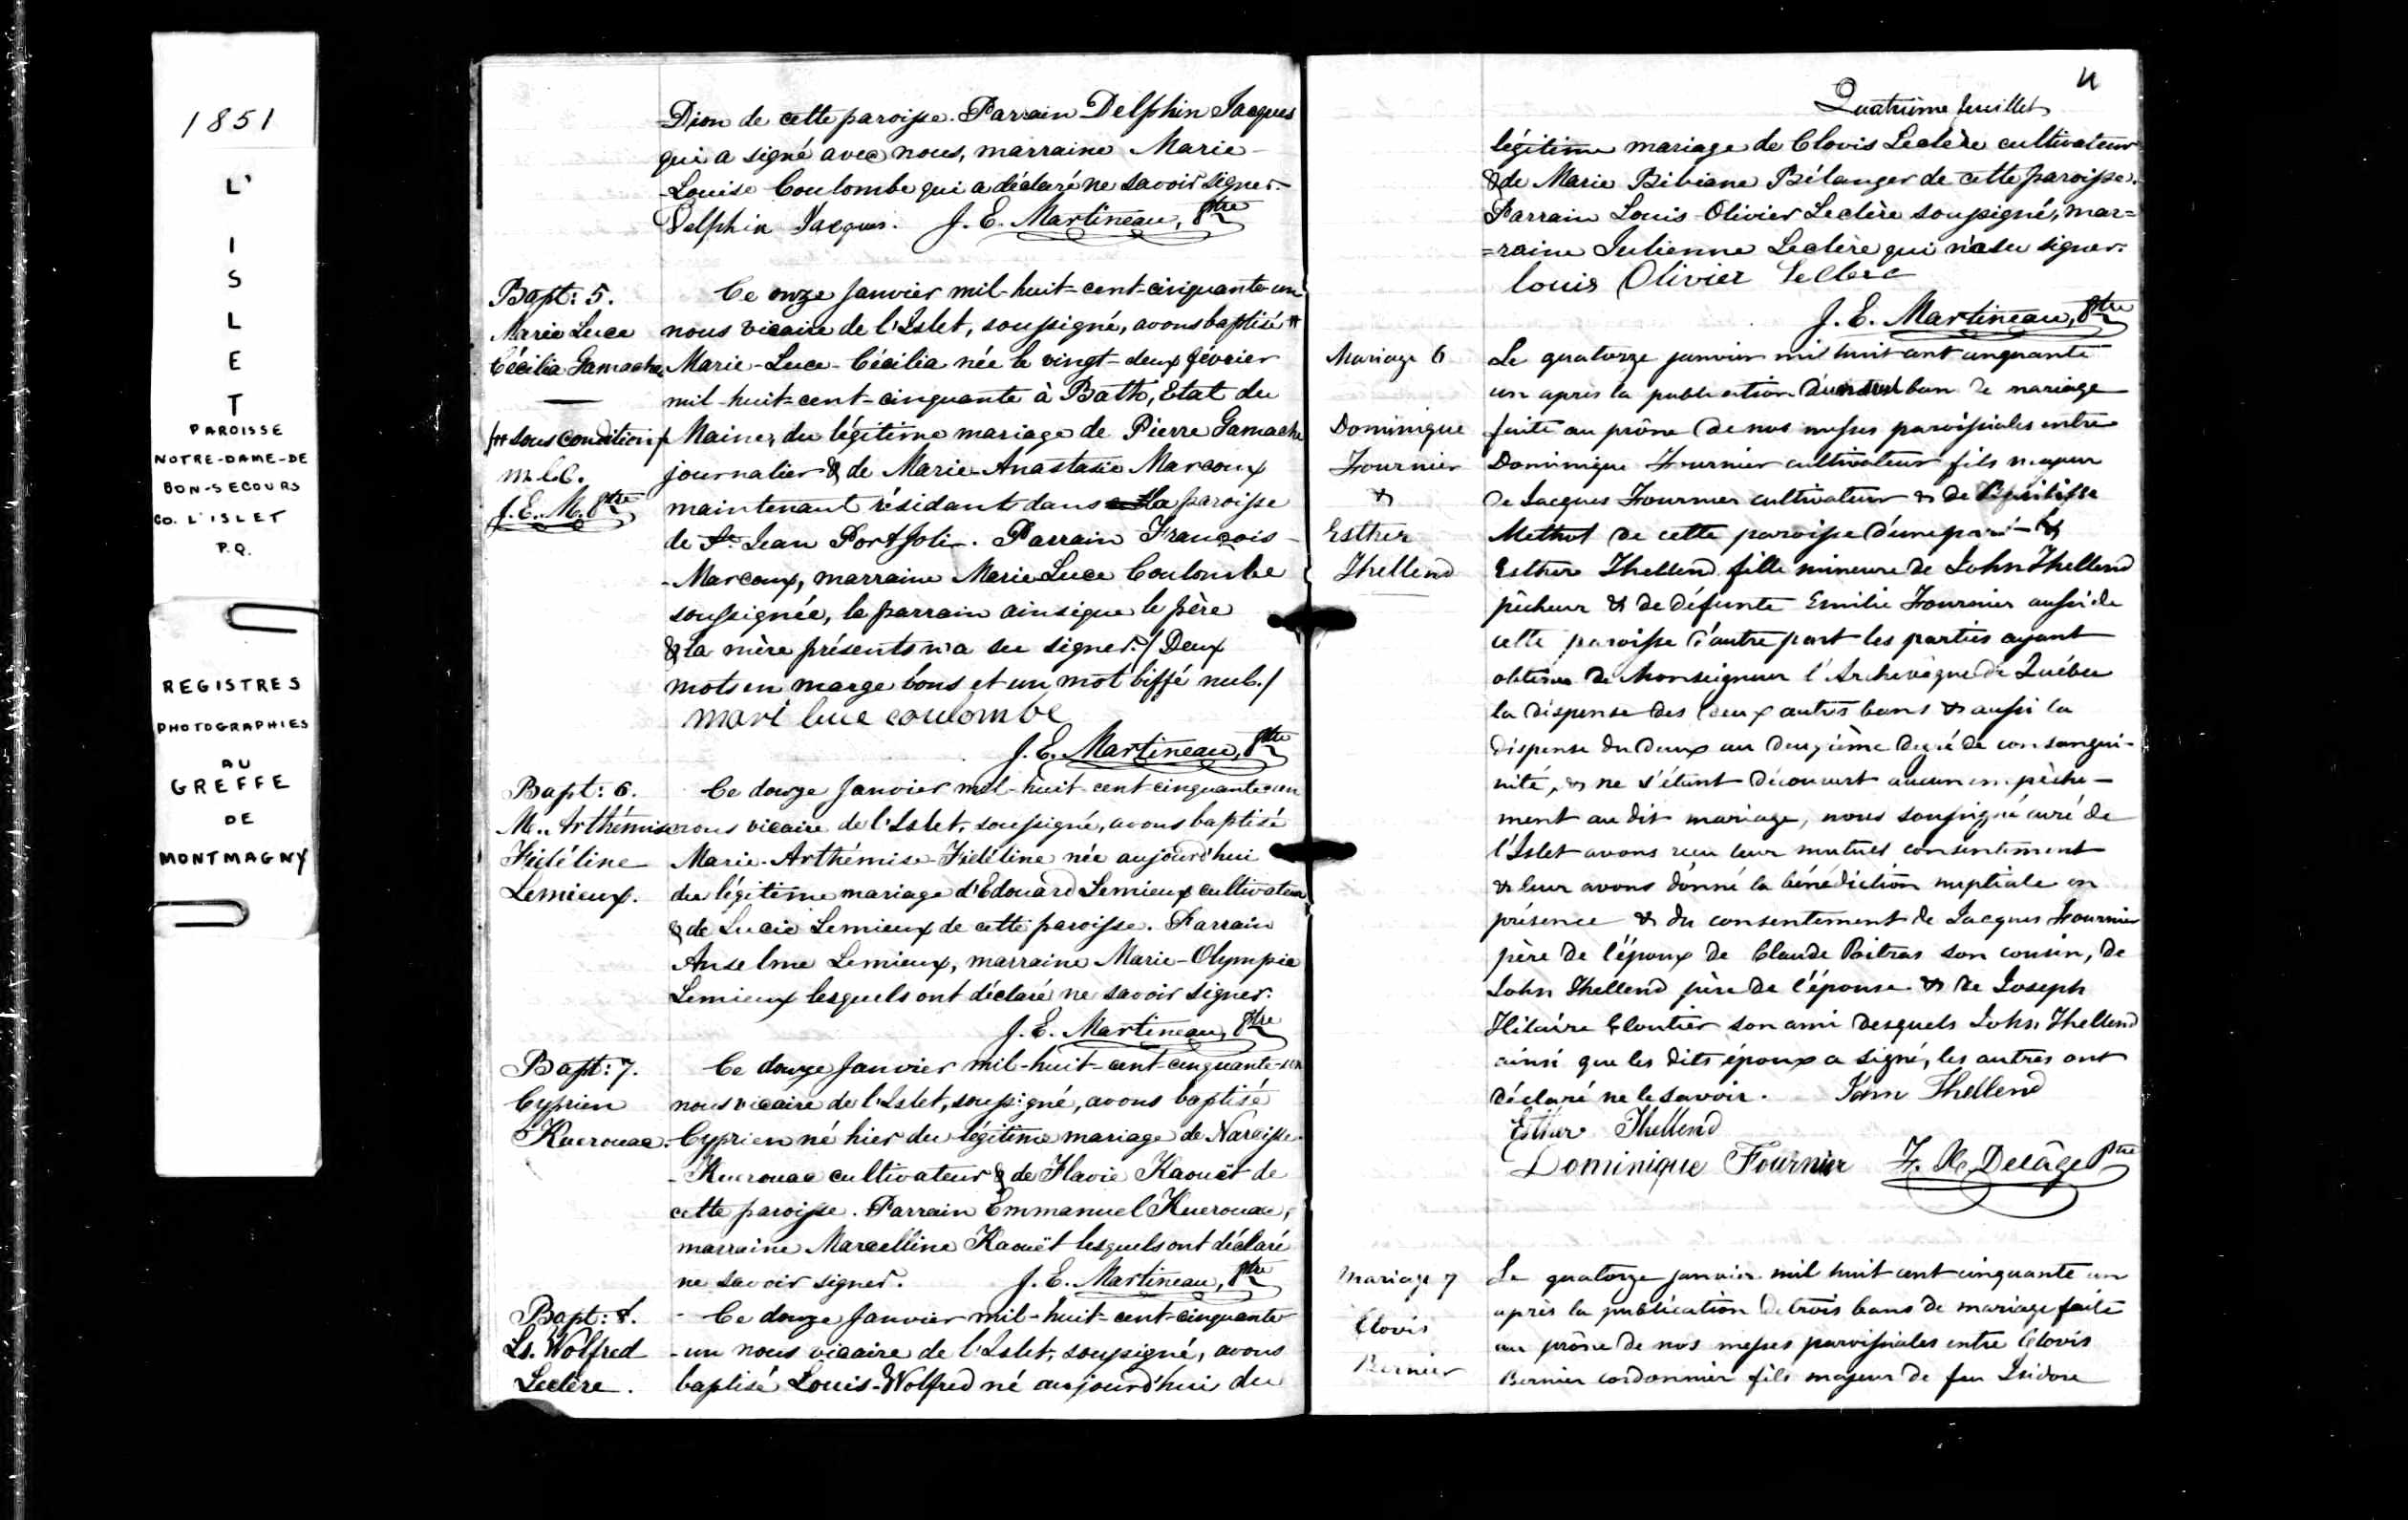 1851
L'
I
S
L
E
T
PAROISSE
NOTRE-DAME-DE
BON-SECOURS
CO. L'ISLET
P.Q.
REGISTRES
PHOTOGRAPHIES
AU
GREFFE
DE
MONTMAGNY
Dion de cette paroisse. Parrain Delphin Jacques
qui a signé avec nous, marraine Marie-
-Louise Coulombe qui a déclaré ne savoir signer.-
Delphin Jacques. J. E. Martineau, Ptre
Bapt: 5.
Marie Luce
Cécilia Gamache
/# sous condition/
m.l.C.
J. E. M. Ptre
Ce onze Janvier mil-huit-cent-cinquante-un
nous vicaire de l'Islet, soussigné, avons baptisé #
Marie-Luce-Cécilia née le vingt-deux février
mil-huit-cent-cinquante à Bath, Etat du
Maine, du légitime mariage de Pierre Gamache
journalier & de Marie-Anastasie Marcoux
maintenant résidant dans la paroisse
de St. Jean Port Joli. Parrain François-
-Marcoux, marraine Marie Luce Coulombe
soussignée, le parrain ainsi que le père
& la mère présents n'a su signer. / Deux
mots en marge bons et un mot biffé nul./
mari luce coulombe
J. E. Martineau, Ptre
Bapt: 6.
M. Arthémise
Fidéline
Lemieux.
Ce douze Janvier mil-huit-cent-cinquante-un
nous vicaire de l'Islet, soussigné, avons baptisé
Marie-Arthémise-Fidéline née aujourd'hui
du légitime mariage d'Edouard Lemieux cultivateur
& de Lucie Lemieux de cette paroisse. Parrain
Anselme Lemieux, marraine Marie-Olympie
Lemieux lesquels ont déclaré ne savoir signer.
J. E. Martineau, Ptre
Bapt: 7.
Cyprien
Kuerouac.
Ce douze Janvier mil-huit-cent-cinquante-un
nous vicaire de l'Islet, soussigné, avons baptisé
Cyprien né hier du légitime mariage de Narcisse-
-Kuerouac cultivateur & de Flavie Kaouët de
cette paroisse. Parrain Emmanuel Kuerouac,
marraine Marcelline Kaouët lesquels ont déclaré
ne savoir signer. J. E. Martineau, Ptre
Bapt: 8.
Ls. Wolfred
Leclère.
- Ce douze Janvier mil-huit-cent-cinquante
-un nous vicaire de l'Islet, soussigné, avons
baptisé Louis-Wolfred né aujourd'hui du
4
Quatrième feuillet
légitime mariage de Clovis Leclère cultivateur
& de Marie Bibiane Bélanger de cette paroisse.
Parrain Louis-Olivier Leclère soussigné, mar=
=raine Julienne Leclère qui n'a su signer.
louis Olivier leclerc
J. E. Martineau, Ptre
Mariage 6
Dominique
Fournier
&
Esther
Thellend
Le quatorze janvier mil huit cent cinquante
un après la publication d'un seul ban de mariage
faite au prône de nos messes paroissiales entre
Dominique Fournier cultivateur fils majeur
de Jacques Fournier cultivateur & de
Methot de cette paroisse d'une part &
Esther Thellend fille mineure de John Thellend
pêcheur & de défunte Emilie Fournier aussi de
cette paroisse d'autre part les parties ayant
obtenu de Monseigneur l'Archevêque de Québec
la dispense des deux autres bans & aussi la
dispense du deux au deuxième degré de consangui-
nité, & ne s'étant découvert aucun empêche-
ment au dit mariage, nous soussigné curé de
l'Islet avons reçu leur mutuel consentement
& leur avons donné la bénédiction nuptiale en
présence & du consentement de Jacques Fournier
père de l'époux de Claude Poitras son cousin, de
John Thellend père de l'épouse & de Joseph
Hilaire Cloutier son ami desquels John Thellend
ainsi que les dits époux a signé, les autres ont
déclaré ne le savoir. John Thellend
Esther Thellend
Dominique Fournier F. X. Delâge Ptre
Mariage 7
Clovis
Bernier
Le quatorze janvier mil huit cent cinquante un
après la publication de trois bans de mariage faite
au prône de nos messes paroissiales entre Clovis
Bernier cordonnier fils majeur de feu Isidore